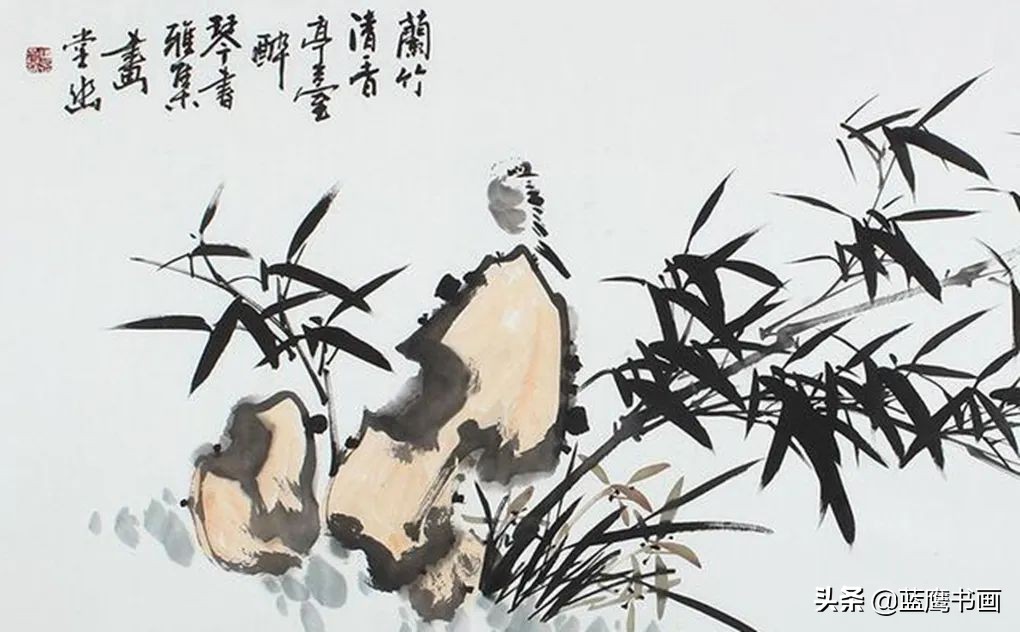 蘭竹
清香
亭臺
醉
琴書
雅集
畫
堂幽
头条 @蓝鹰书画